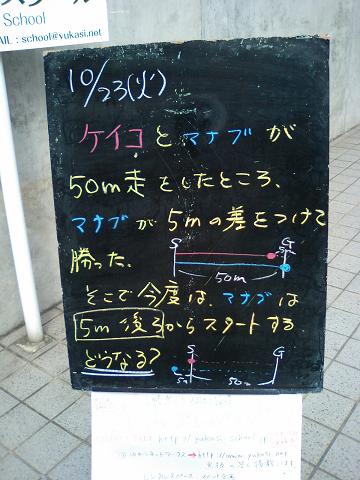 School
AIL : school@yukasi.net
10/23(火)
ケイコとマナブが
50m走をしたところ、
マナブが5mの差をつけて
勝った。
S G
5m
50m
そこで今度は、マナブは
5m後ろからスタートする
どうなる?
S G
5m 50m
http://yukasi.school.jp
→http://www.yukasi.net